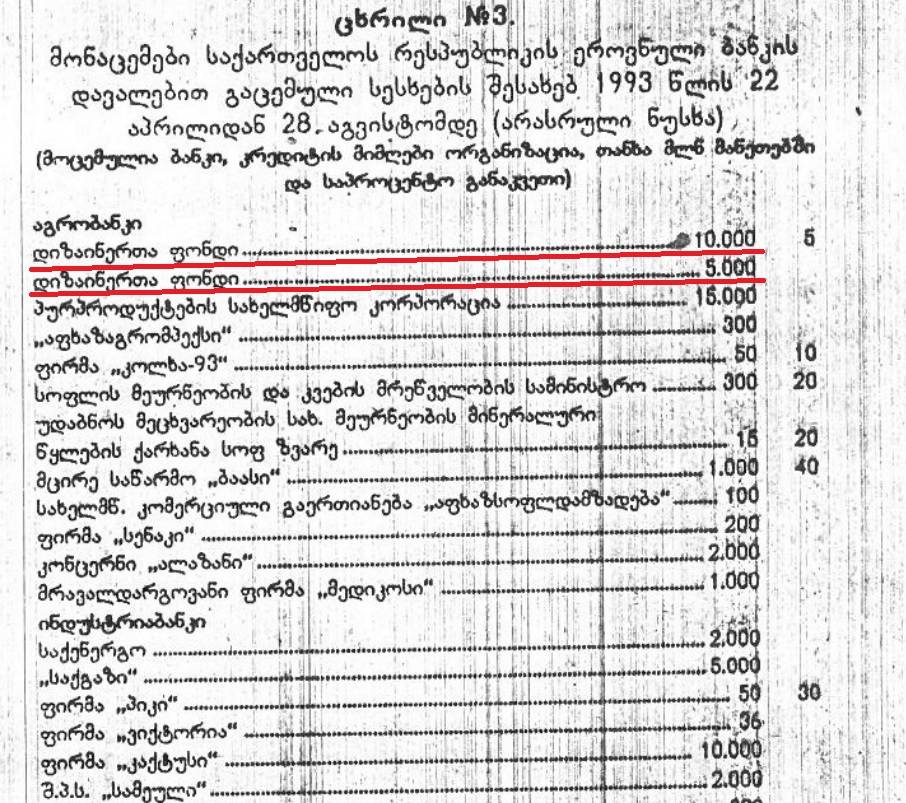 ცხრილი №3.
მონაცემები საქართველოს რესპუბლიკის ეროვნული ბანკის
დავალებით გაცემული სესხების შესახებ 1993 წლის 22
აპრილიდან 28 აგვისტომდე (არასრული ნუსხა)
(მოცემულია ბანკი, კრედიტის მიმღები ორგანიზაცია, თანხა მლნ მანეთებში
და საპროცენტო განაკვეთი)
აგრობანკი
დიზაინერთა ფონდი ........ 10.000 5
დიზაინერთა ფონდი ........ 5.000
პურპროდუქტების სახელმწიფო კორპორაცია ........ 15.000
„აფხაზაგრომპექსი“ ........ 300
ფირმა „კოლხა-93“ ........ 50 10
სოფლის მეურნეობის და კვების მრეწველობის სამინისტრო ........ 300 20
უდაბნოს მეცხვარეობის სახ. მეურნეობის მინერალური
წყლების ქარხანა სოფ ზვარე ........ 15 20
მცირე საწარმო „ბაასი“ ........ 1.000 40
სახელმწ. კომერციული გაერთიანება „აფხაზსოფლდამზადება“ ........ 100
ფირმა „სენაკი“ ........ 200
კონცერნი „ალაზანი“ ........ 2.000
მრავალდარგოვანი ფირმა „მედიკოსი“ ........ 1.000
ინდუსტრიაბანკი
საქენერგო ........ 2.000
„საქგაზი“ ........ 5.000
ფირმა „პიკი“ ........ 50 30
ფირმა „ვიქტორია“ ........ 36
ფირმა „კაქტუსი“ ........ 10.000
შ.პ.ს. „სამეული“ ........ 2.000